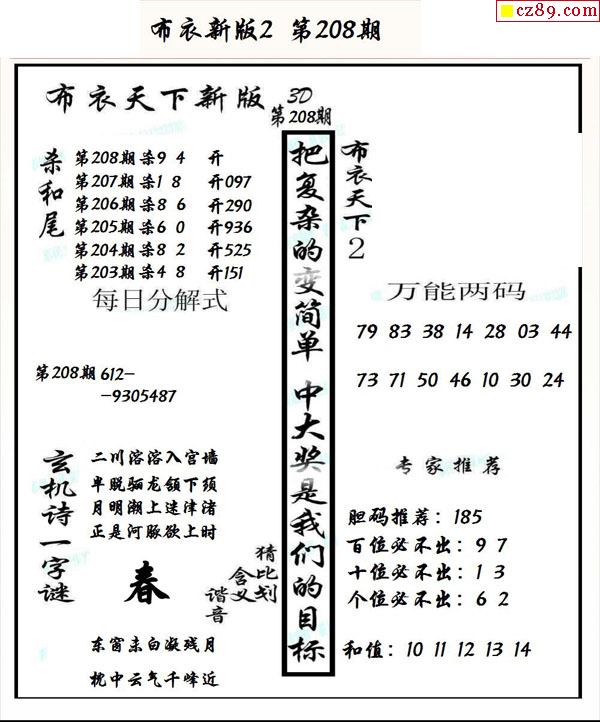 cz89.com
布衣新版2 第208期
布衣天下新版 3D
第208期
杀和尾
第208期杀9 4 开
第207期杀1 8 开097
第206期杀8 6 开290
第205期杀6 0 开936
第204期杀8 2 开525
第203期杀4 8 开151
每日分解式
第208期 612-
-9305487
玄机诗一字谜
二川溶溶入宫墙
早脱骊龙领下须
月明潮上迷津渚
正是河豚欲上时
春
猜比划
含义
谐音
东窗未白凝残月
枕中云气千峰近
把复杂的变简单 中大奖是我们的目标
布衣天下2
万能两码
79 83 38 14 28 03 44
73 71 50 46 10 30 24
专家推荐
胆码推荐：185
百位必不出：9 7
十位必不出：1 3
个位必不出：6 2
和值：10 11 12 13 14